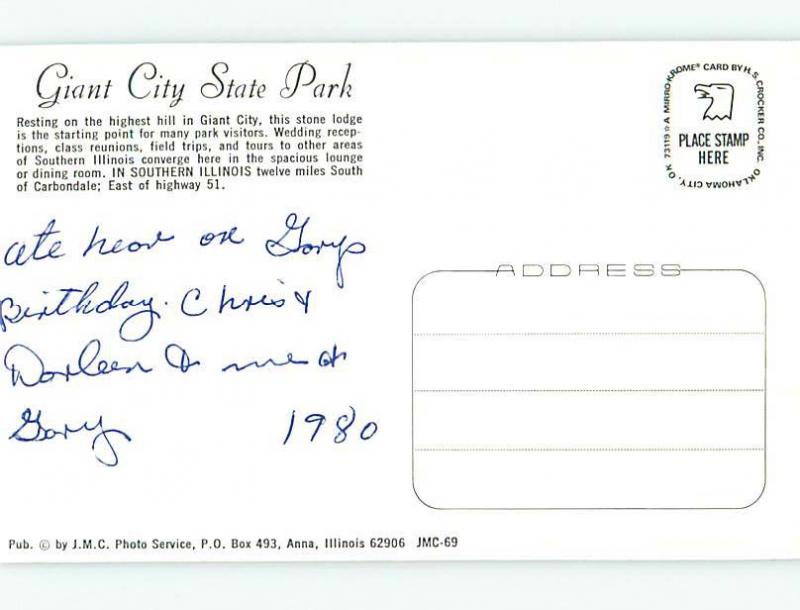 Giant City State Park
Resting on the highest hill in Giant City, this stone lodge
is the starting point for many park visitors. Wedding recep-
tions, class reunions, field trips, and tours to other areas
of Southern Illinois converge here in the spacious lounge
or dining room. IN SOUTHERN ILLINOIS twelve miles South
of Carbondale; East of highway 51.
A MIRRO-KROME® CARD BY H. S. CROCKER CO., INC. OKLAHOMA CITY, OK 73119
PLACE STAMP
HERE
ate hear on Garys
Birthday. Chris &
Darleen & me &
Gary 1980
ADDRESS
Pub. © by J.M.C. Photo Service, P.O. Box 493, Anna, Illinois 62906 JMC-69